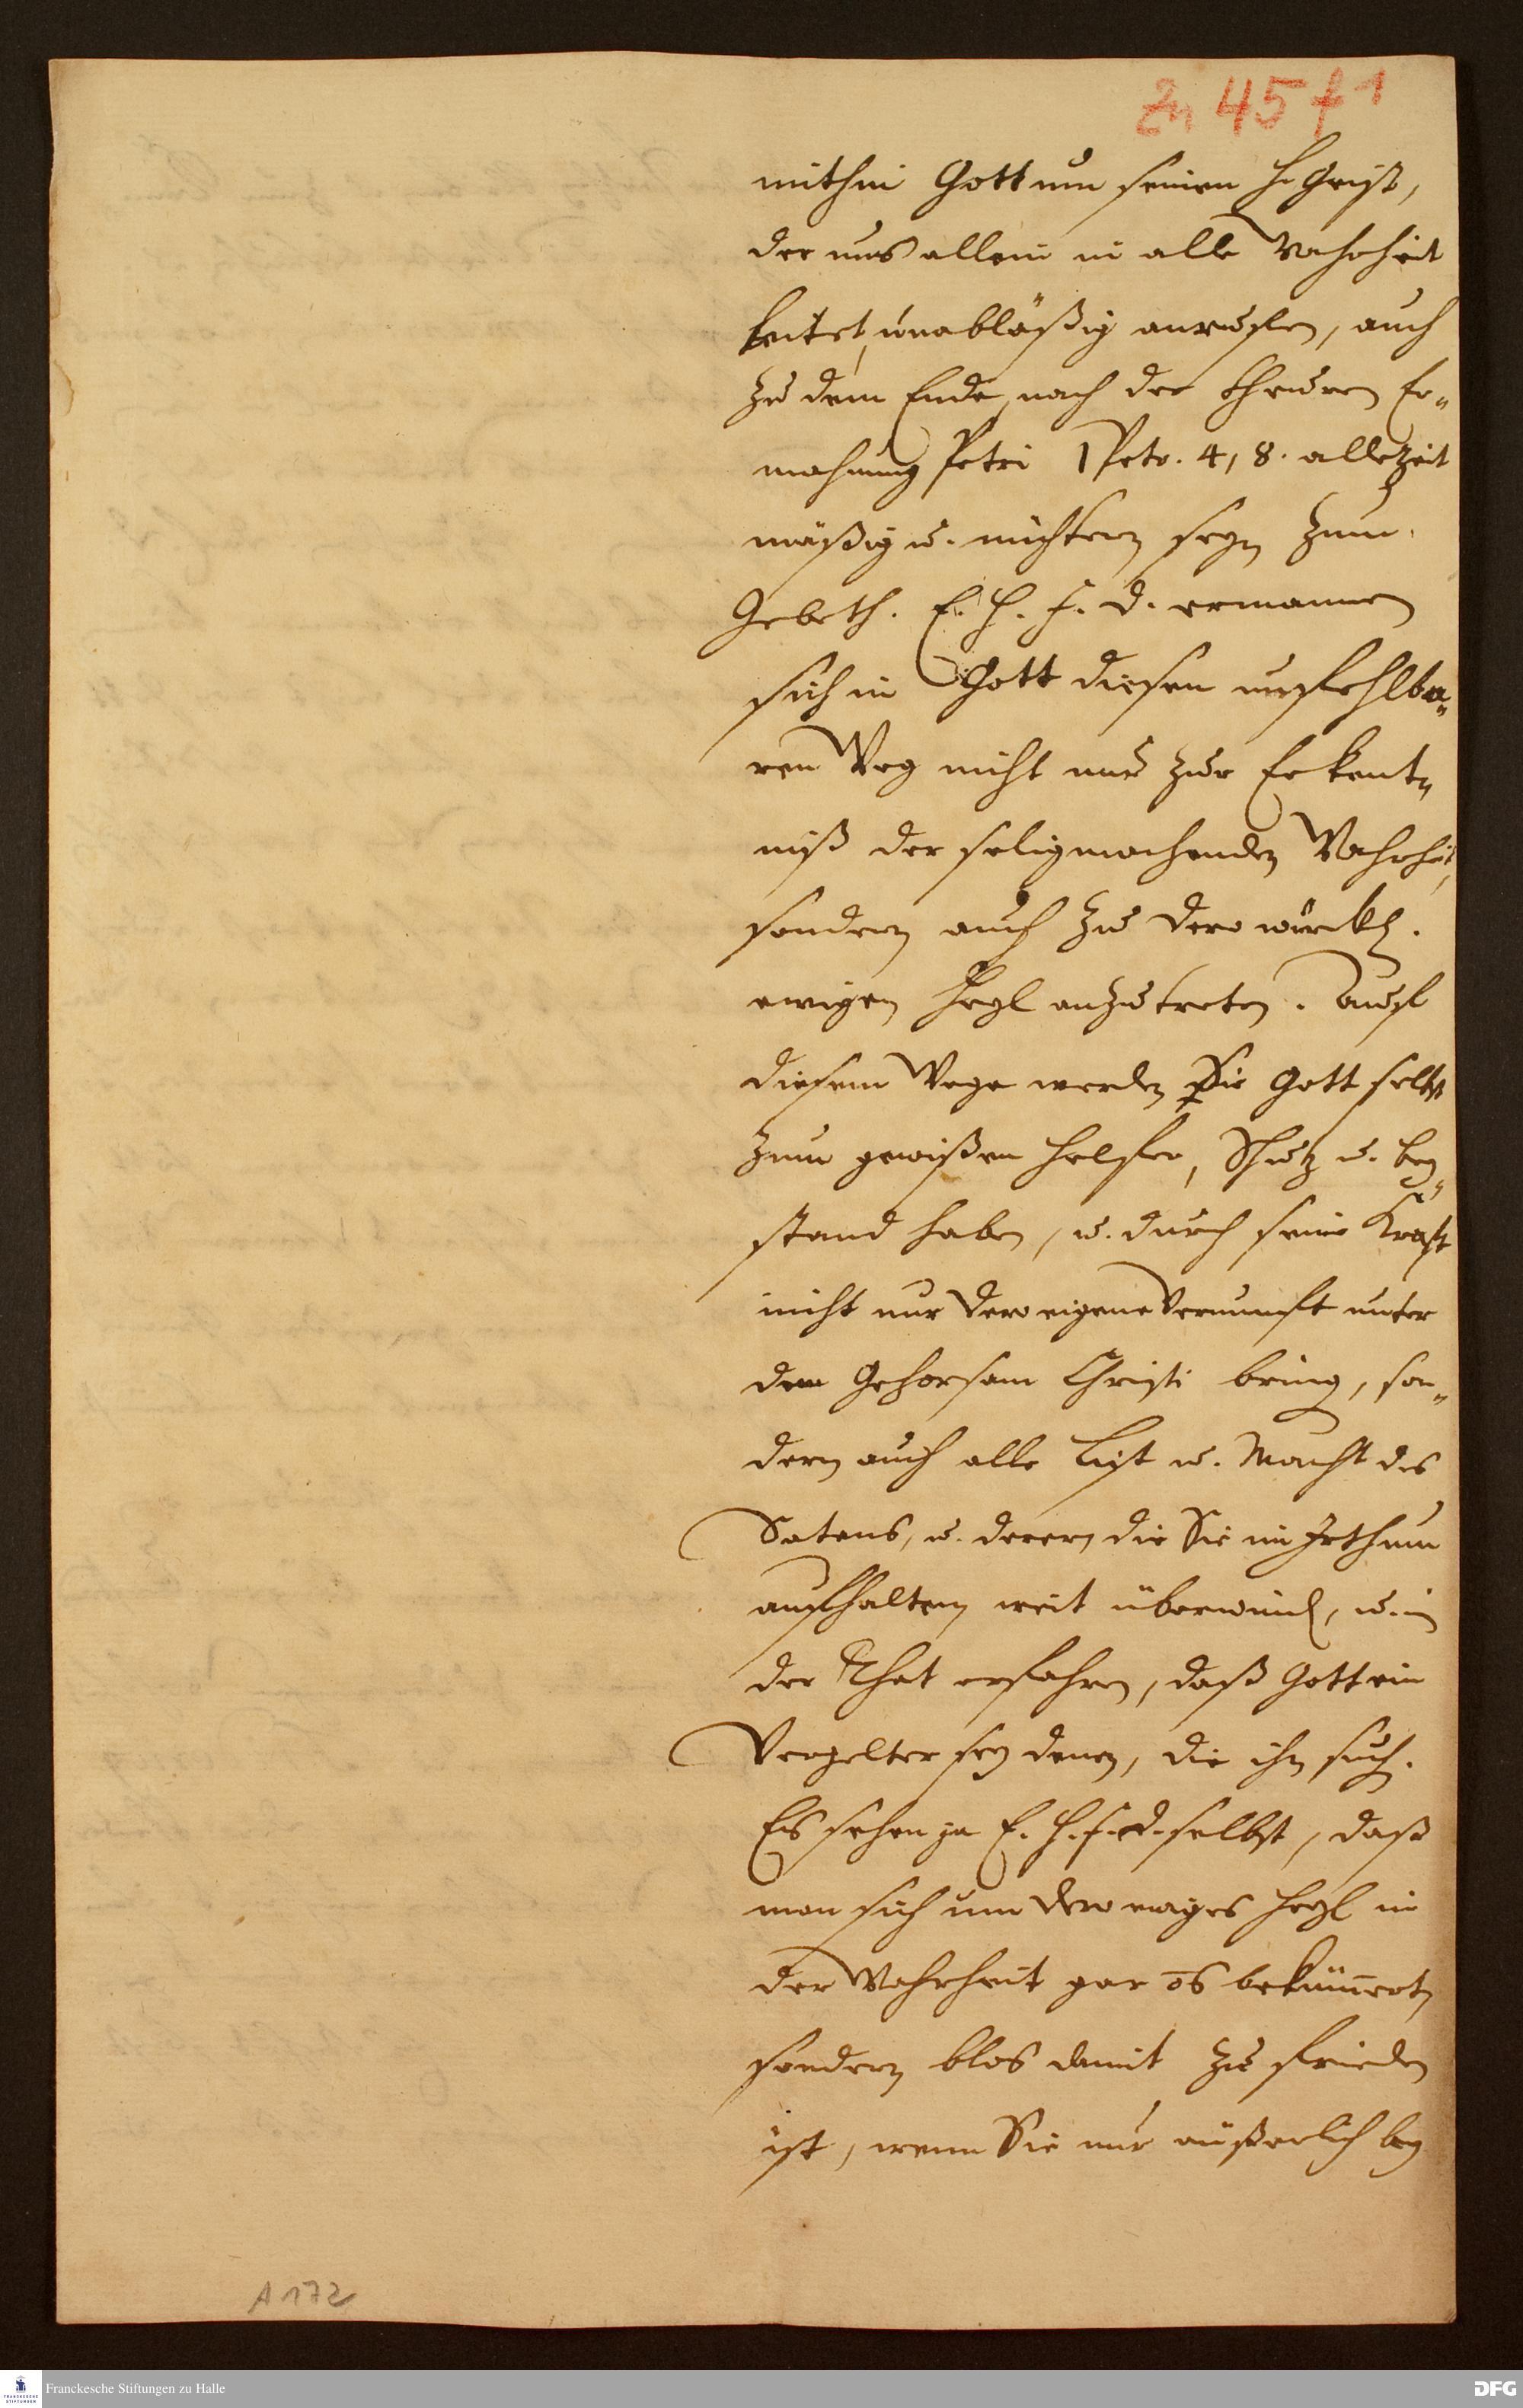 Zu 45 f 1
mithin Gott um seinen H. Geist,
der uns allein in alle Wahrheit
leitet, unabläßig anruffen, auch
zu dem Ende, nach der theuren Er-
mahnung Petri 1 Petr. 4, 8. allezeit
mäßig u. nüchtern seyn zum
Gebeth. E. H. F. D. ermannen
sich in Gott diesen unfehlba-
ren Weg nicht nur zur Erkent-
niß der seligmachenden Wahrheit,
sondern auch zu dero würckl.
ewigen Heyl anzutreten. Auf
diesem Wege werden Sie Gott selbst
zum gewißen Helfer, Schutz u. bey-
stand haben, u. durch seine Krafft
nicht nur dero eigene Vernunfft unter
den Gehorsam Christi bring, son-
dern auch alle List u. Macht des
Satans, u. derern die Sie im Irthum
aufhalten weit überwind, u. in
der That erfahren, daß Gott ein
Vergelter sey denen, die ihn such.
Es sehen ja E. H. F. D. selbst, daß
man sich um dero ewiges Heyl in
der Wahrheit gar bekümert,
sondern blos damit zu frieden
ist, wenn Sie nur äußerlich bey
A 172
Franckesche Stiftungen zu Halle
DFG